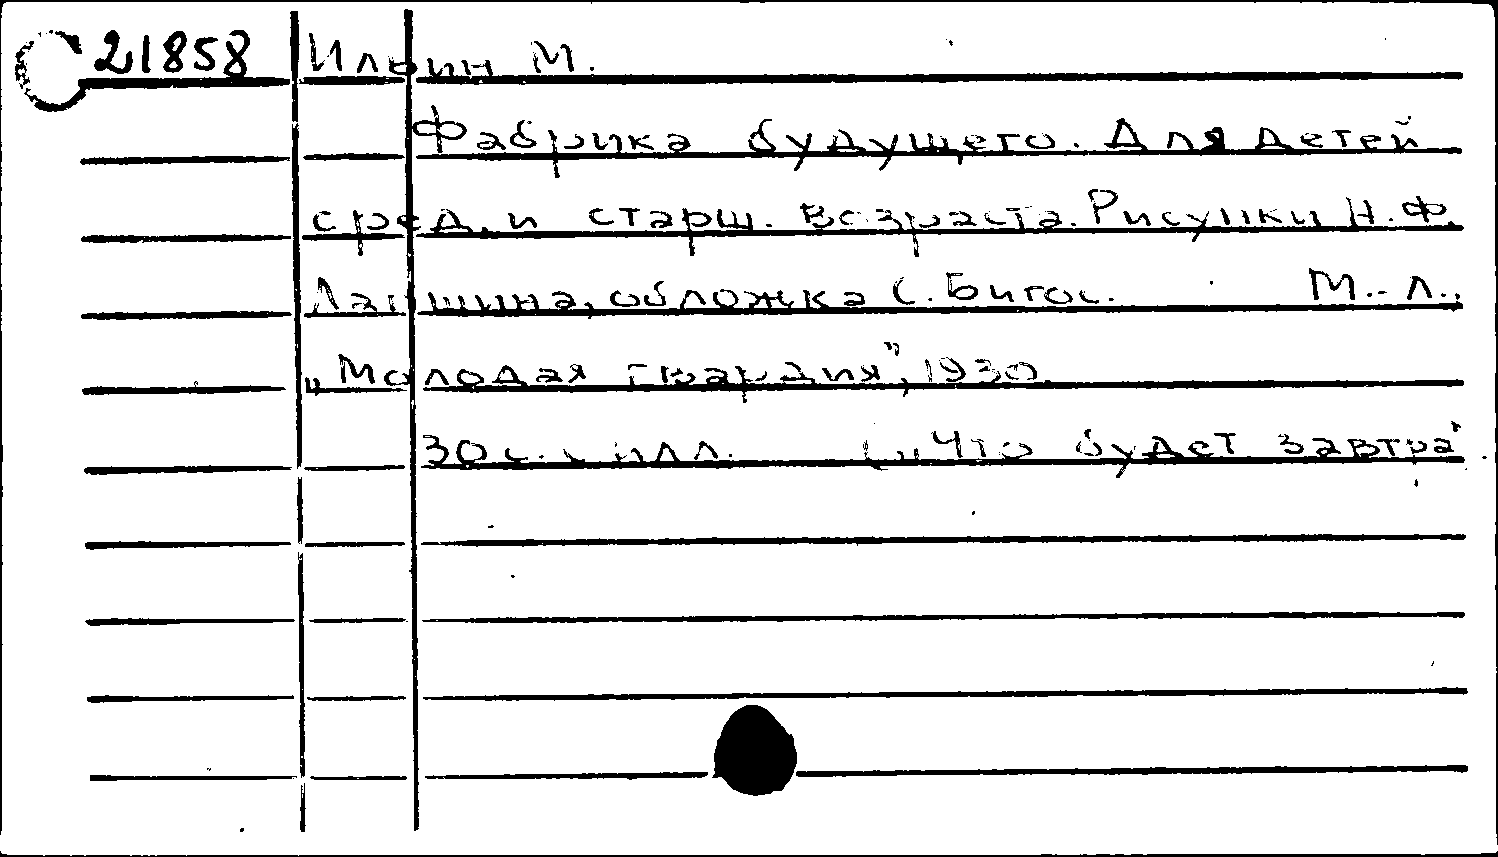 21858 Ильин М.
Фабрика будущего. Для детей
сред. и старш. возраста. Рисунки Н.Ф.
Лапшина, обложка С. Бигос. М.-Л.,
„Молодая гвардия", 1930.
30 с. с илл. („Что будет завтра"